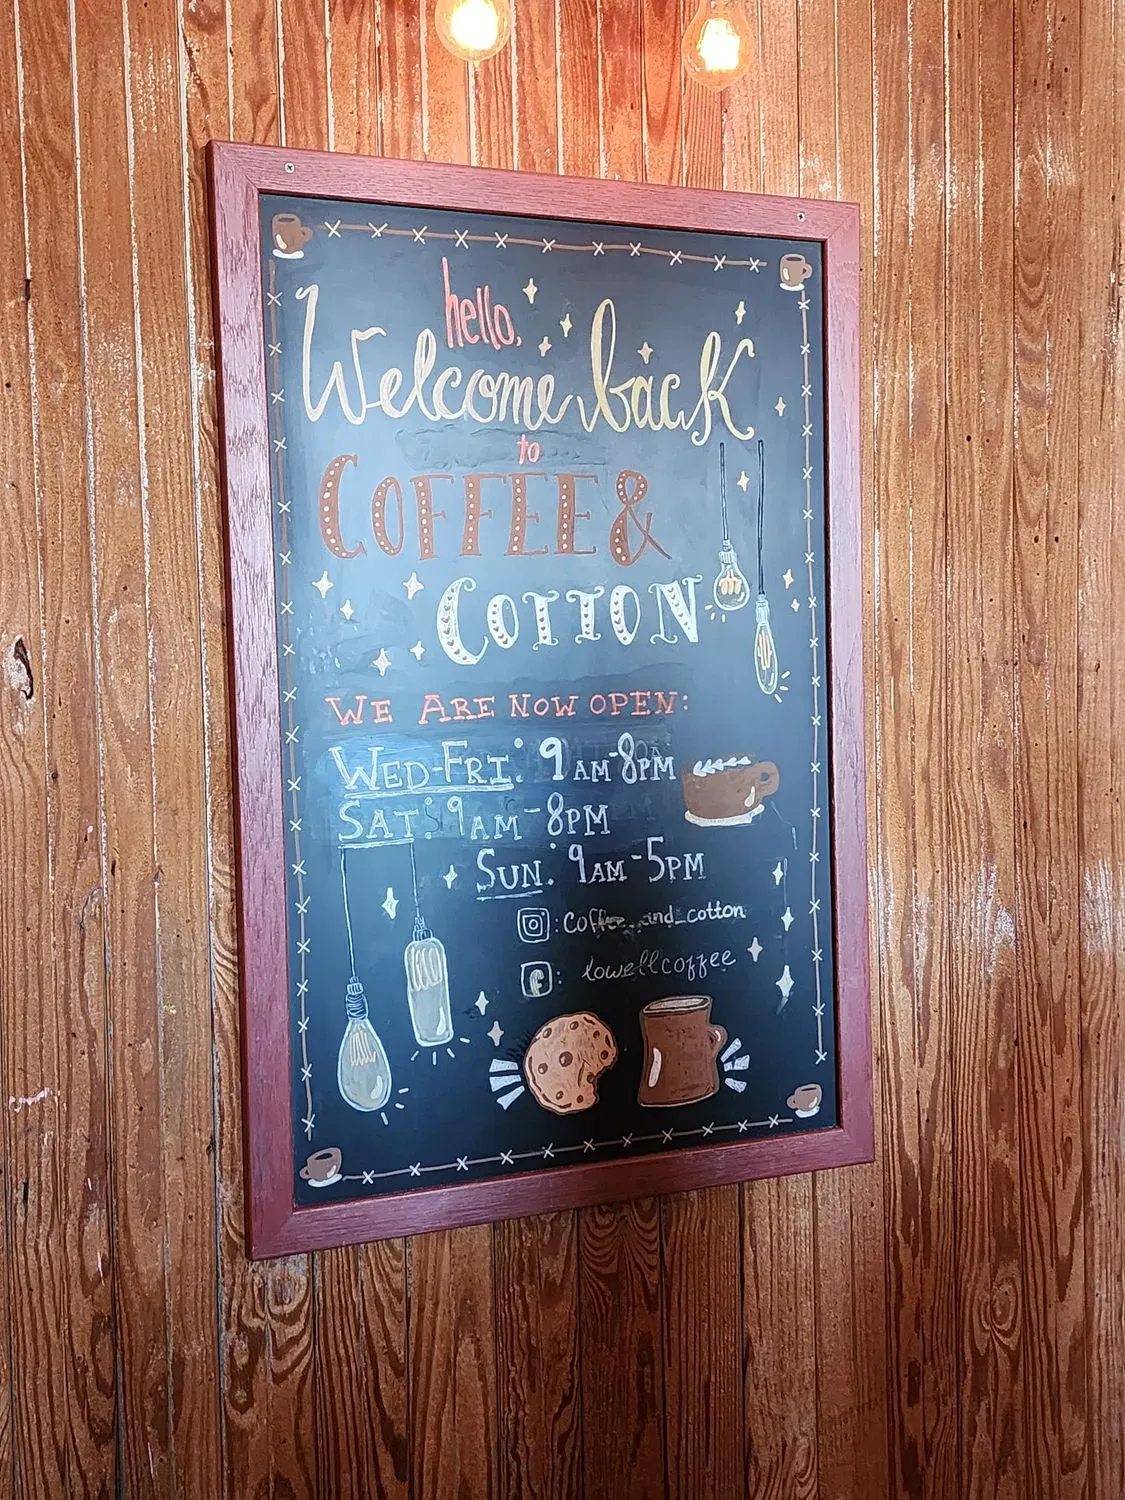 hello,
Welcome back
to
COFFEE &
COTTON
WE ARE NOW OPEN:
WED-FRI: 9AM-8PM
SAT: 9AM-8PM
SUN: 9AM-5PM
: Coffee_and_cotton
: lowellcoffee